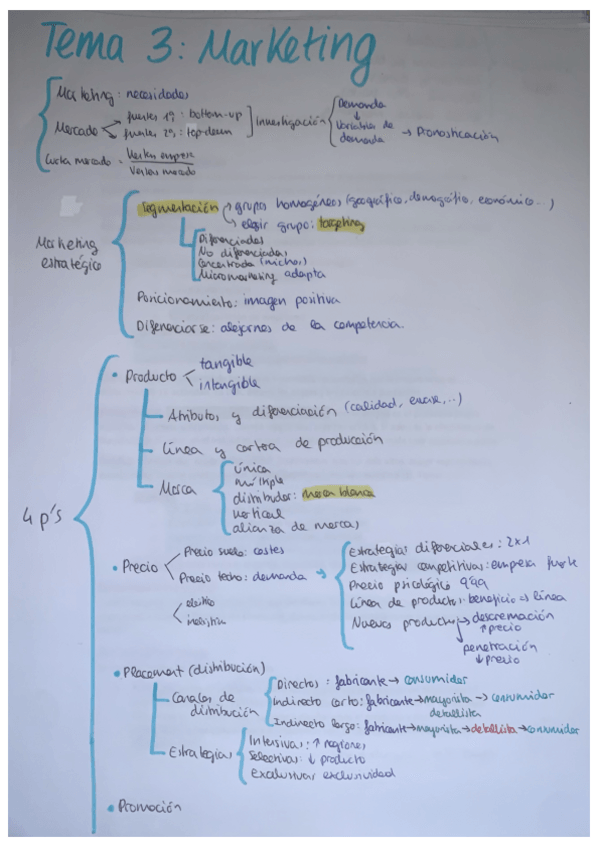 Tema 3: Marketing
Marketing: necesidades
Mercado fuentes 1ª: bottom-up
fuentes 2ª: top-down
Investigación
Demanda
↓
Variables de demanda → Pronosticación
Cuota mercado = Ventas empresa
Ventas mercado
Marketing estratégico
Segmentación → grupos homogéneos (geográfico, demográfico, económico...)
→ elegir grupo: targeting
Diferenciadas
No diferenciadas
Concentrada (nichos)
Micromarketing adapta
Posicionamiento: imagen positiva
Diferenciarse: alejarnos de la competencia.
4 p's
• Producto tangible
intangible
Atributos y diferenciación (calidad, envase,..)
Línea y cartera de producción
Marca
única
múltiple
distribuidor: marca blanca
vertical
alianza de marcas
• Precio
Precio suelo: costes
Precio techo: demanda →
elástico
inelástica
Estrategias diferenciales: 2x1
Estrategias competitivas: empresa fuerte
Precio psicológico 9'99
Línea de productos: beneficio → línea
Nuevos productos → descremación
↑ precio
penetración
↓ precio
• Placement (distribución)
Canales de distribución
Directos: fabricante → consumidor
Indirecto corto: fabricante → mayorista → consumidor
detallista
Indirecto largo: fabricante → mayorista → detallista → consumidor
Estrategias
Intensivas: ↑ regiones
Selectivas: ↓ producto
Exclusivas exclusividad
• Promoción